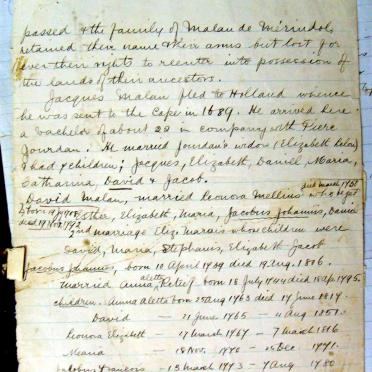 passed & the family of Malan de Mérindol
retained their name & their arms but lost for
ever their rights to reenter into possession of
the lands of their ancestors.
Jacques Malan fled to Holland whence
he was sent to the Cape in 1689. He arrived here
a bachelor of about 22 in company with Pierre
Jourdan. He married Jourdan's widow (Elizabeth le Long)
& had children; Jacques, Elizabeth, Daniel, Maria,
Catharina, David & Jacob.
David Malan, married Leonora Mellins who begat
Esther, Elizabeth, Maria, Jacobus Johannis, Daniel
2nd marriage Eliz. Marais whose children were
David, Maria, Stephanis, Elizabeth Jacob
Jacobus Johannis, born 10 April 1739 died 19 Aug. 1806.
married Anna Aletta Retief born 18 July 1744 died 1795.
children. Anna Aletta born 25 Aug 1763 died 17 June 1814.
David — 21 June 1765 —
Leonora Elizabeth — 17 March 1767 — 7 March 1816
Maria — 18 Nov. 1770 —
— 13 March 1773 — 7 Aug 1780